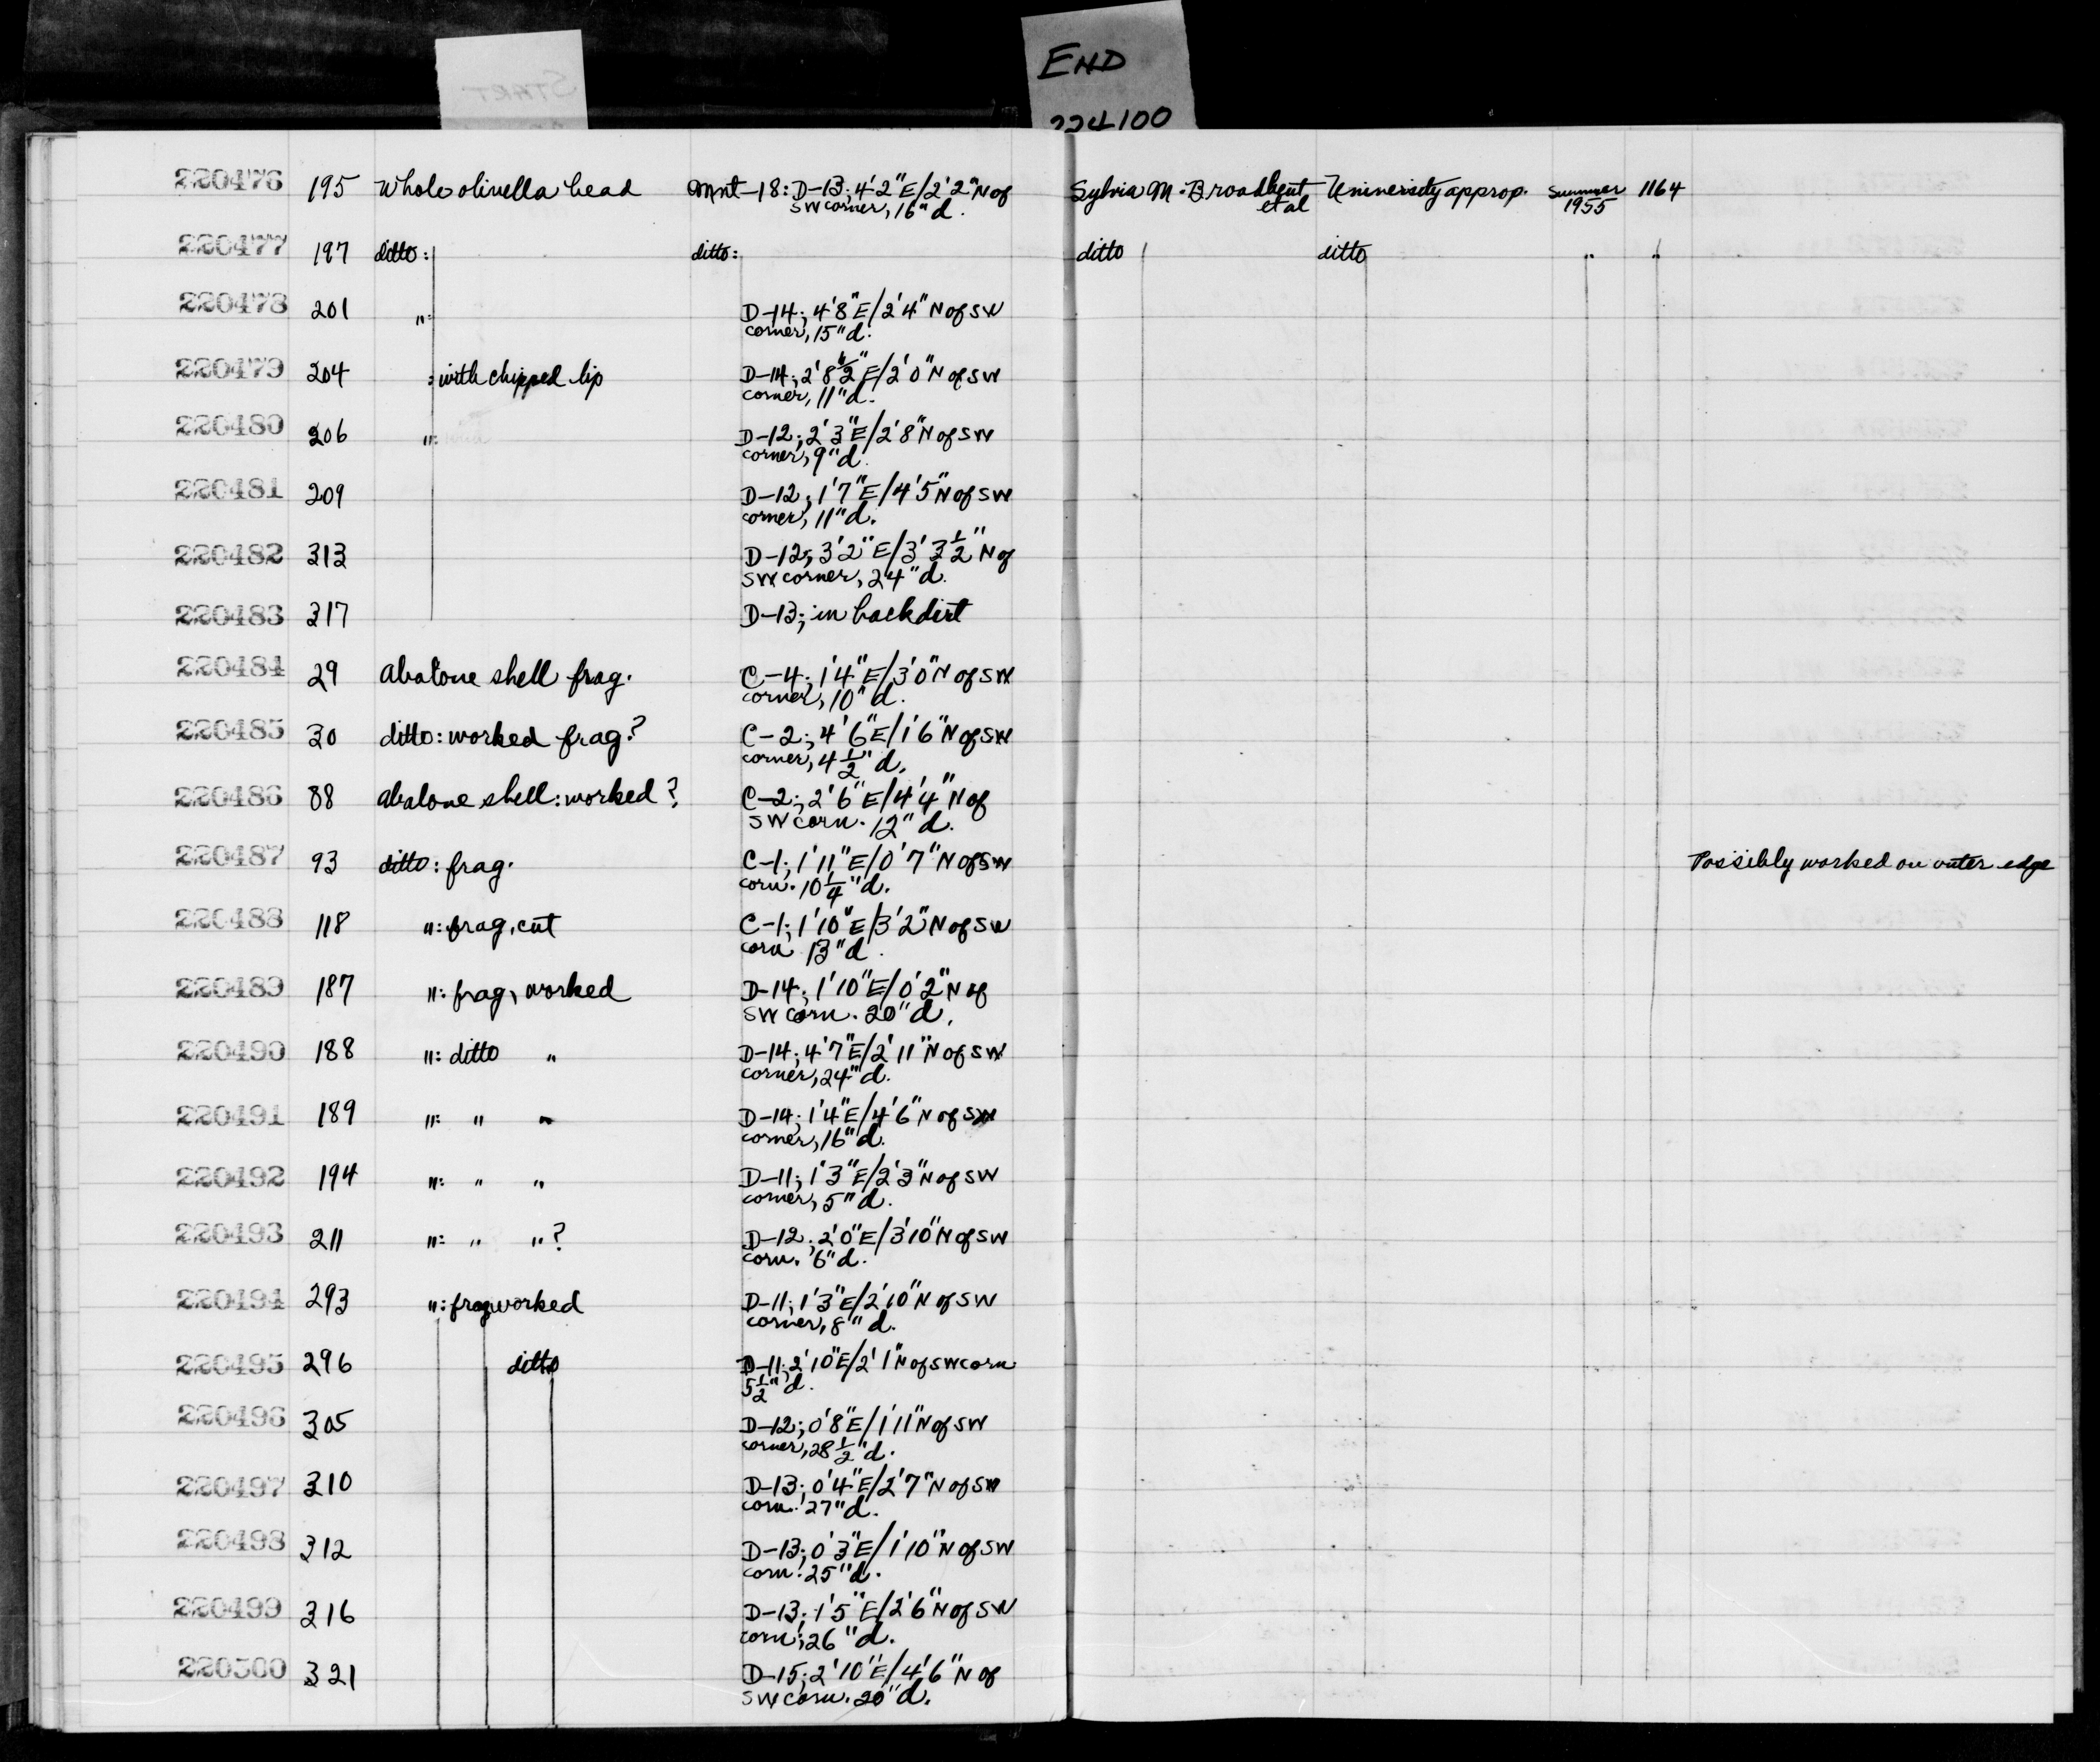 START
END
224100
220476 195 Whole olivella bead Mnt-18: D-13; 4'2"E/2'2"N of Sylvia M. Broadbent University approp. Summer 1164
SW corner, 16"d. et al 1955
220477 197 ditto: ditto: ditto ditto " "
220478 201 ": D-14; 4'8"E/2'4"N of SW
corner, 15"d.
220479 204 : with chipped lip D-14; 2'8½"E/2'0"N of SW
corner, 11"d.
220480 206 ": D-12; 2'3"E/2'8"N of SW
corner, 9"d.
220481 209 D-12; 1'7"E/4'5"N of SW
corner, 11"d.
220482 313 D-12; 3'2"E/3'3½"N of
SW corner, 24"d.
220483 317 D-13; in backdirt
220484 29 Abalone shell frag. C-4; 1'4"E/3'0"N of SW
corner, 10"d.
220485 30 ditto: worked frag? C-2; 4'6"E/1'6"N of SW
corner, 4½"d.
220486 88 abalone shell: worked? C-2; 2'6"E/4'4"N of
SW corn. 12"d.
220487 93 ditto: frag. C-1; 1'11"E/0'7"N of SW Possibly worked on outer edge
corn. 10¼"d.
220488 118 ": frag, cut C-1; 1'10"E/3'2"N of SW
corn 13"d.
220489 187 ": frag, worked D-14; 1'10"E/0'2"N of
SW corn. 20"d.
220490 188 ": ditto " D-14; 4'7"E/2'11"N of SW
corner, 24"d.
220491 189 ": " " D-14; 1'4"E/4'6"N of SW
corner, 16"d.
220492 194 ": " " D-11; 1'3"E/2'3"N of SW
corner, 5"d.
220493 211 ": " "? D-12; 2'0"E/3'10"N of SW
corn. 6"d.
220494 293 ": frag, worked D-11; 1'3"E/2'10"N of SW
corner, 8"d.
220495 296 ditto D-11; 2'10"E/2'1"N of SW corn
5½"d.
220496 305 D-12; 0'8"E/1'11"N of SW
corner, 28½"d.
220497 310 D-13; 0'4"E/2'7"N of SW
corn. 27"d.
220498 312 D-13; 0'3"E/1'10"N of SW
corn. 25"d.
220499 316 D-13; 1'5"E/2'6"N of SW
corn; 26"d.
220500 321 D-15; 2'10"E/4'6"N of
SW corn. 20"d.